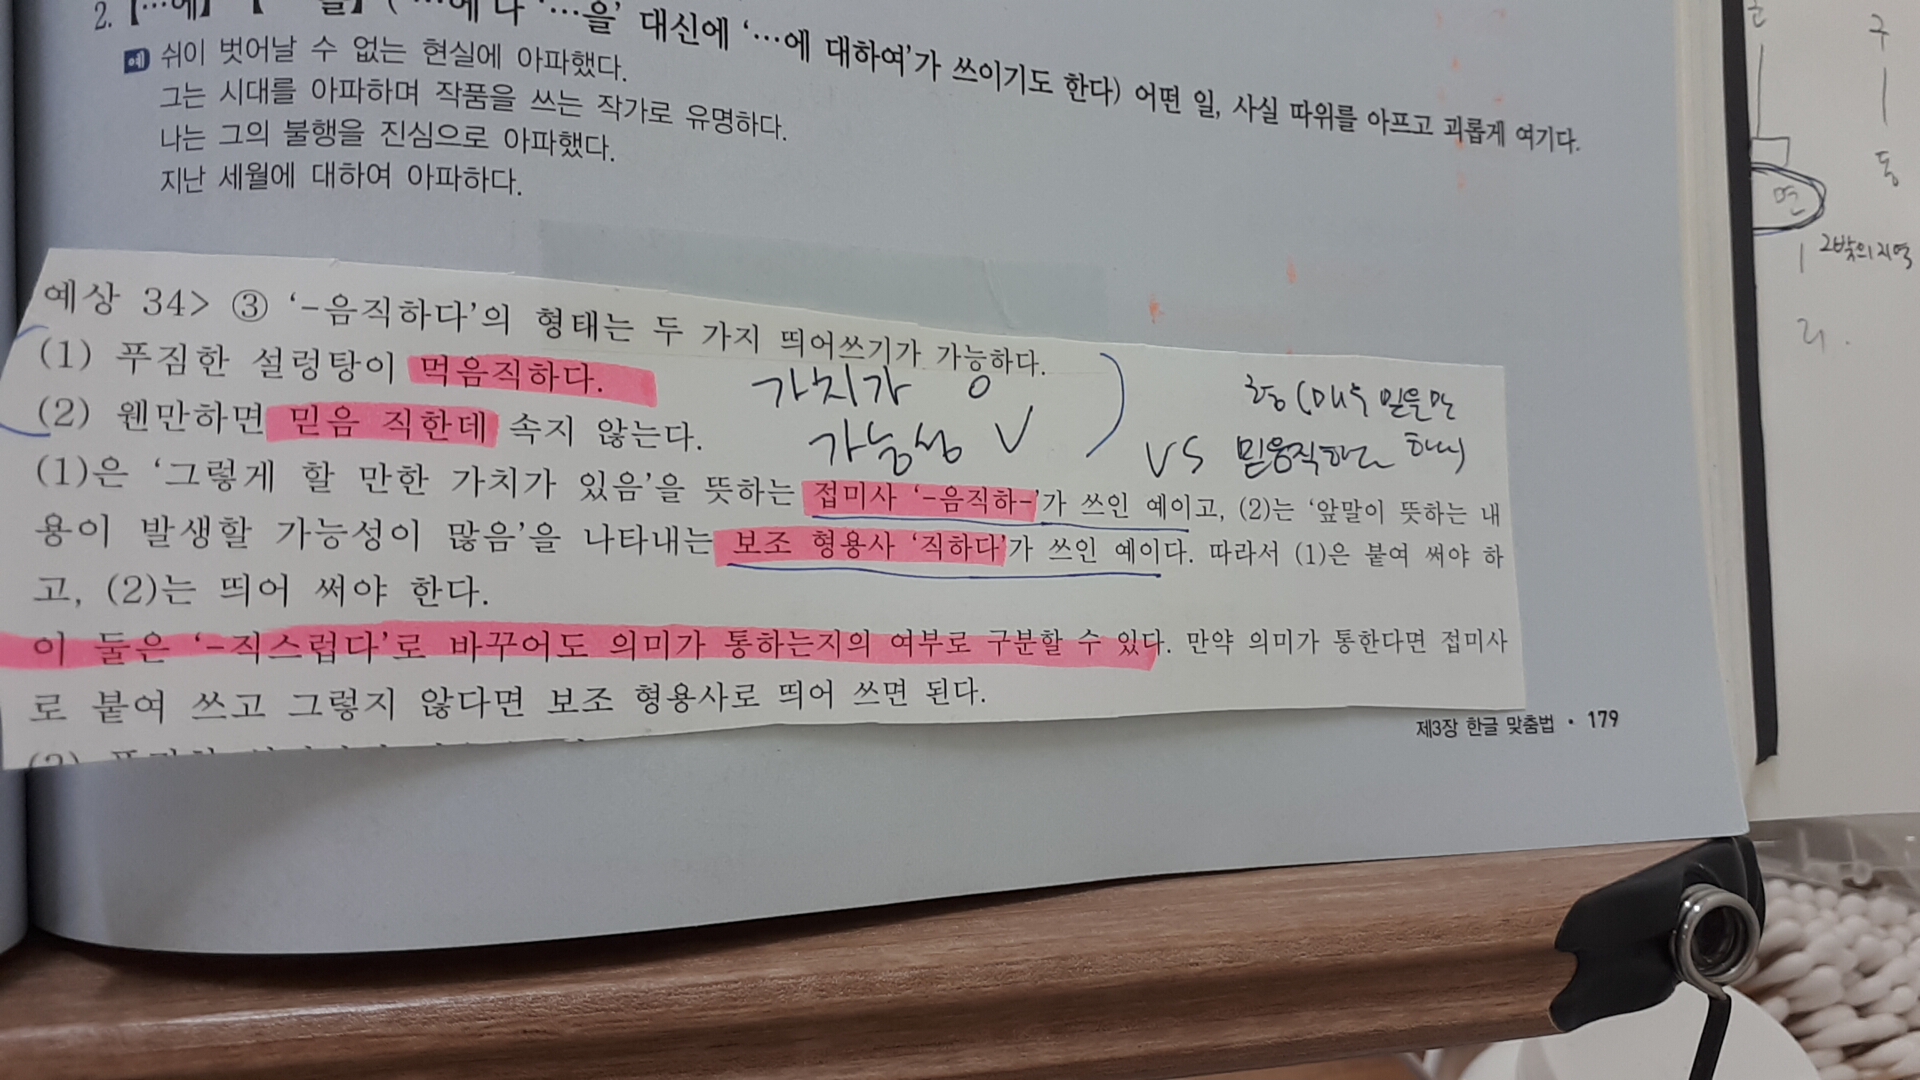 2. 【…에】 【…을】 ('…에'나 '…을' 대신에 '…에 대하여'가 쓰이기도 한다) 어떤 일, 사실 따위를 아프고 괴롭게 여기다.
예 쉬이 벗어날 수 없는 현실에 아파했다.
그는 시대를 아파하며 작품을 쓰는 작가로 유명하다.
나는 그의 불행을 진심으로 아파했다.
지난 세월에 대하여 아파하다.
예상 34> ③ '-음직하다'의 형태는 두 가지 띄어쓰기가 가능하다.
(1) 푸짐한 설렁탕이 먹음직하다.
가치가 O
(2) 웬만하면 믿음 직한데 속지 않는다.
가능성 V
형 (매우 믿을만
VS 믿음직하다 하다)
(1)은 '그렇게 할 만한 가치가 있음'을 뜻하는 접미사 '-음직하-'가 쓰인 예이고, (2)는 '앞말이 뜻하는 내
용이 발생할 가능성이 많음'을 나타내는 보조 형용사 '직하다'가 쓰인 예이다. 따라서 (1)은 붙여 써야 하
고, (2)는 띄어 써야 한다.
이 둘은 '-직스럽다'로 바꾸어도 의미가 통하는지의 여부로 구분할 수 있다. 만약 의미가 통한다면 접미사
로 붙여 쓰고 그렇지 않다면 보조 형용사로 띄어 쓰면 된다.
제3장 한글 맞춤법 • 179
구
동
면
그밖의 지역
리.